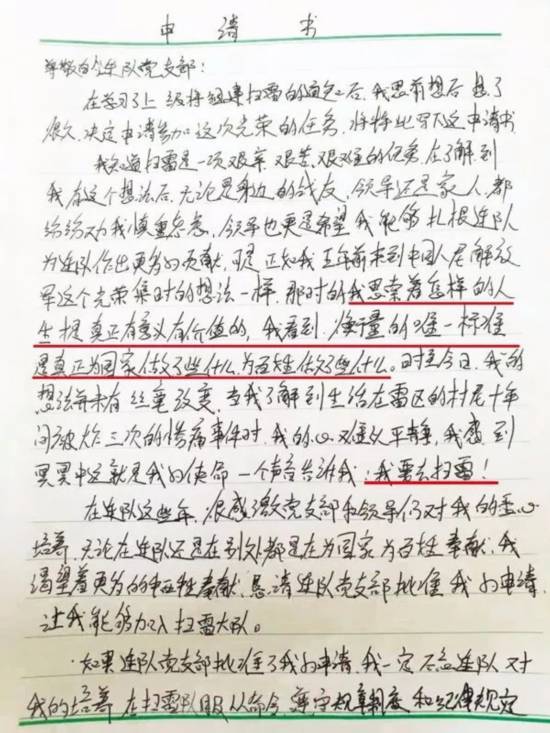 申请书
尊敬的连队党支部：
在学习了上级将组建扫雷的通知后，我思前想后想了
很久，决定申请参加这次光荣的任务，特将此写下这申请书
我知道扫雷是一项艰辛、艰苦、艰难的任务，在了解到
我有这个想法后，无论是身边的战友，领导还是家人，都
给给劝我慎重考虑，领导也更是希望我能够扎根连队
为连队作出更多的贡献，可是正如我五年前来到中国人民解放
军这个光荣集时的想法一样，那时的我思索着怎样的人
生提真正有意义有价值的，我看到，衡量的唯一标准
是真正为国家做了些什么，为百姓做了些什么。时至今日，我的
想法并未有丝毫改变，当我了解到生活在雷区的村民十年
间被炸三次的惨痛事件时，我的心难以平静，我感到
冥冥中这就是我的使命，一个声音告诉我：我要去扫雷！
在连队这些年，很感激党支部和领导们对我的悉心
培养，无论在连队还是在别处都是在为国家为百姓奉献，我
渴望着更多的牺牲奉献，恳请连队党支部批准我的申请，
让我能够加入扫雷大队。
如果连队党支部批准了我的申请，我一定不忘连队对
我的培养，在扫雷队服从命令，遵守规章制度和纪律规定